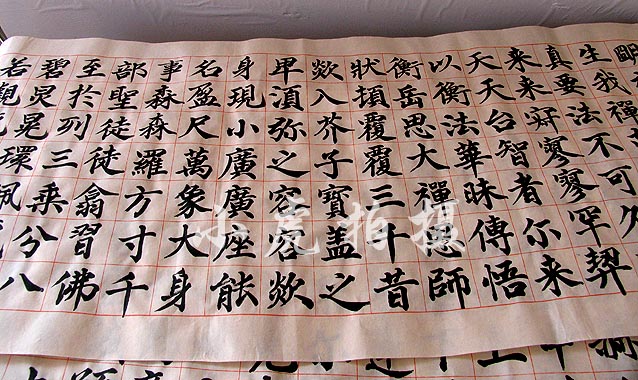 剛
生我禪
真要法不可
来来寂寥寥罕契
天天台智者尓来
以衡法華昧傳悟
衡岳思大禪思師
狀頂覆覆三十昔
欻入芥子寶盖之
卑湏弥之容容欻
身現小廣廣座能
名盈尺萬象大身
事森森羅方寸千
部聖徒徒翕習佛
至於列三乘分八
碧炅晃環珮
若觀
小虎拍摄